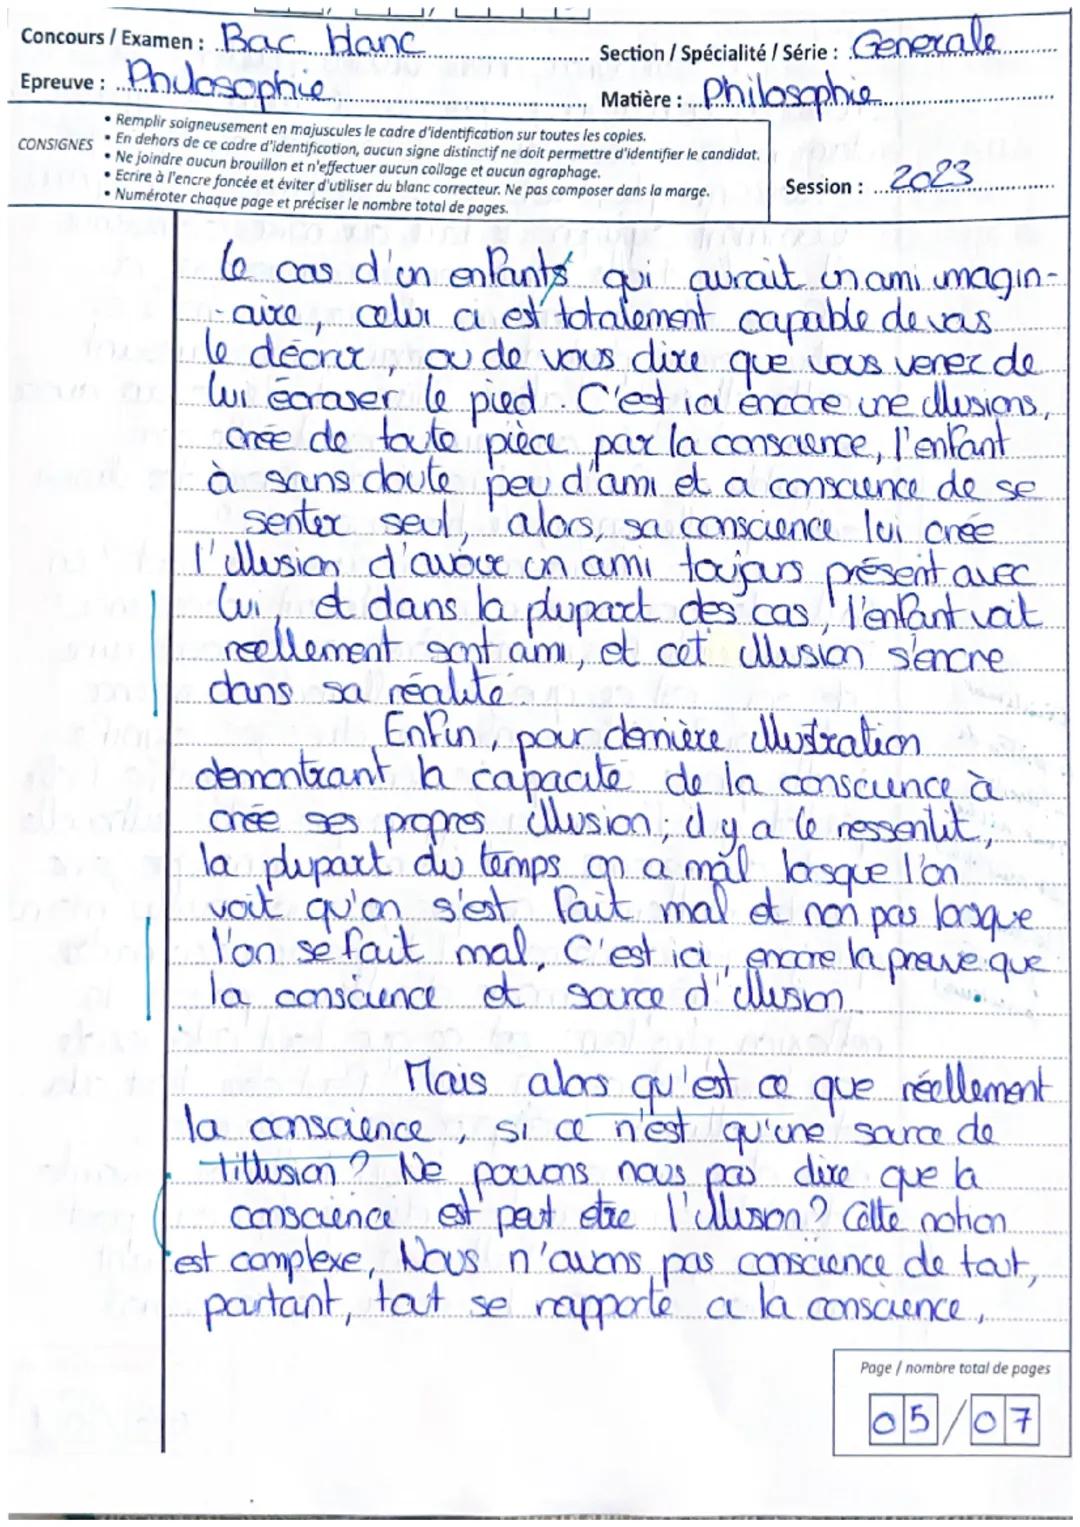 Concours / Examen : Bac blanc
Section / Spécialité / Série : Generale
Epreuve : Philosophie
Matière : Philosophie
CONSIGNES
• Remplir soigneusement en majuscules le cadre d'identification sur toutes les copies.
• En dehors de ce cadre d'identification, aucun signe distinctif ne doit permettre d'identifier le candidat.
• Ne joindre aucun brouillon et n'effectuer aucun collage et aucun agraphage.
• Ecrire à l'encre foncée et éviter d'utiliser du blanc correcteur. Ne pas composer dans la marge.
• Numéroter chaque page et préciser le nombre total de pages.
Session : 2023
le cas d'un enfants qui aurait un ami imagin-
-aire, celui ci est totalement capable de vous
le décrir, ou de vous dire que vous venez de
lui écraser le pied. C'est ici encore une illusions,
créé de toute pièce par la conscience, l'enfant
à sans doute peu d'ami et a conscience de se
senter seul, alors, sa conscience lui créé
l'illusion d'avoir un ami toujours présent avec
lui, et dans la plupart des cas, l'enfant voit
réellement sont ami, et cet illusion s'encre
dans sa réalité.
Enfin, pour dernière illustration
demontrant la capacité de la conscience à
créé ses propres illusion, il y a le ressentit,
la plupart du temps on a mal lorsque l'on
voit qu'on s'est fait mal et non pas lorsque
l'on se fait mal. C'est ici, encore la preuve que
la conscience et source d'illusion.
Mais alors qu'est ce que réellement
la conscience, si ce n'est qu'une source de
l'illusion ? Ne pouvons nous pas dire que la
conscience est peut etre l'illusion ? Cette notion
est complexe, Nous n'avons pas conscience de tout,
pourtant, tout se rapporte a la conscience,
Page / nombre total de pages
05/07